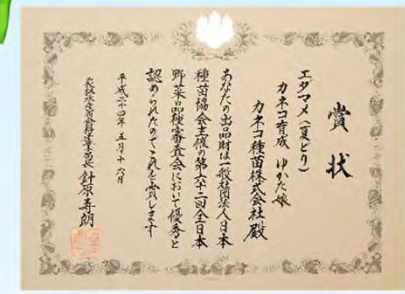 賞状
エダマメ(夏どり)
カネコ育成 ゆかた娘
カネコ種苗株式会社殿
あなたの出品財は一般社団法人日本
種苗協会主催の第六十二回全日本
野菜品種審査会において優秀と
認められたのでこれを賞します
平成二十四年 五月十六日
農林水産省食料産業局長 針原寿朗